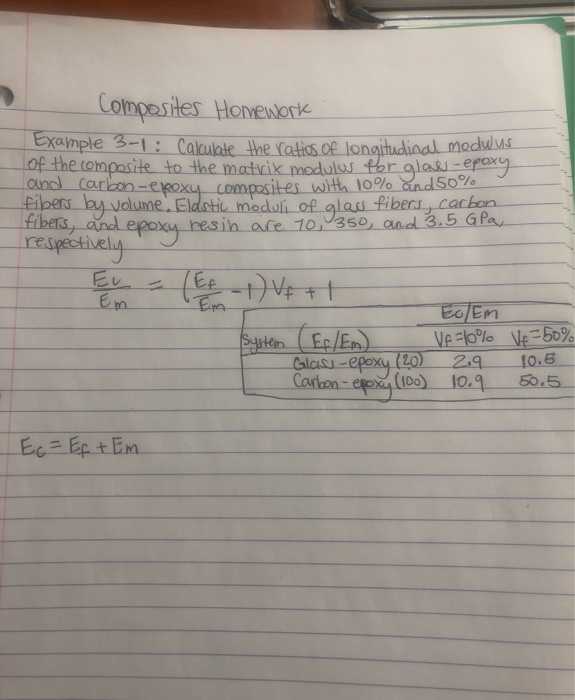 Composites Homework
Example 3-1: Calculate the ratios of longitudinal modulus
of the composite to the matrix modulus for glass-epoxy
and carbon-epoxy composites with 10% and 50%
fibers by volume. Elastic moduli of glass fibers, carbon
fibers, and epoxy resin are 70, 350, and 3.5 GPa,
respectively
Ec/Em = (Ef/Em - 1) Vf + 1
Ec/Em
System (Ef/Em) Vf=10% Vf=50%
Glass-epoxy (20) 2.9 10.5
Carbon-epoxy (100) 10.9 50.5
Ec = Ef + Em